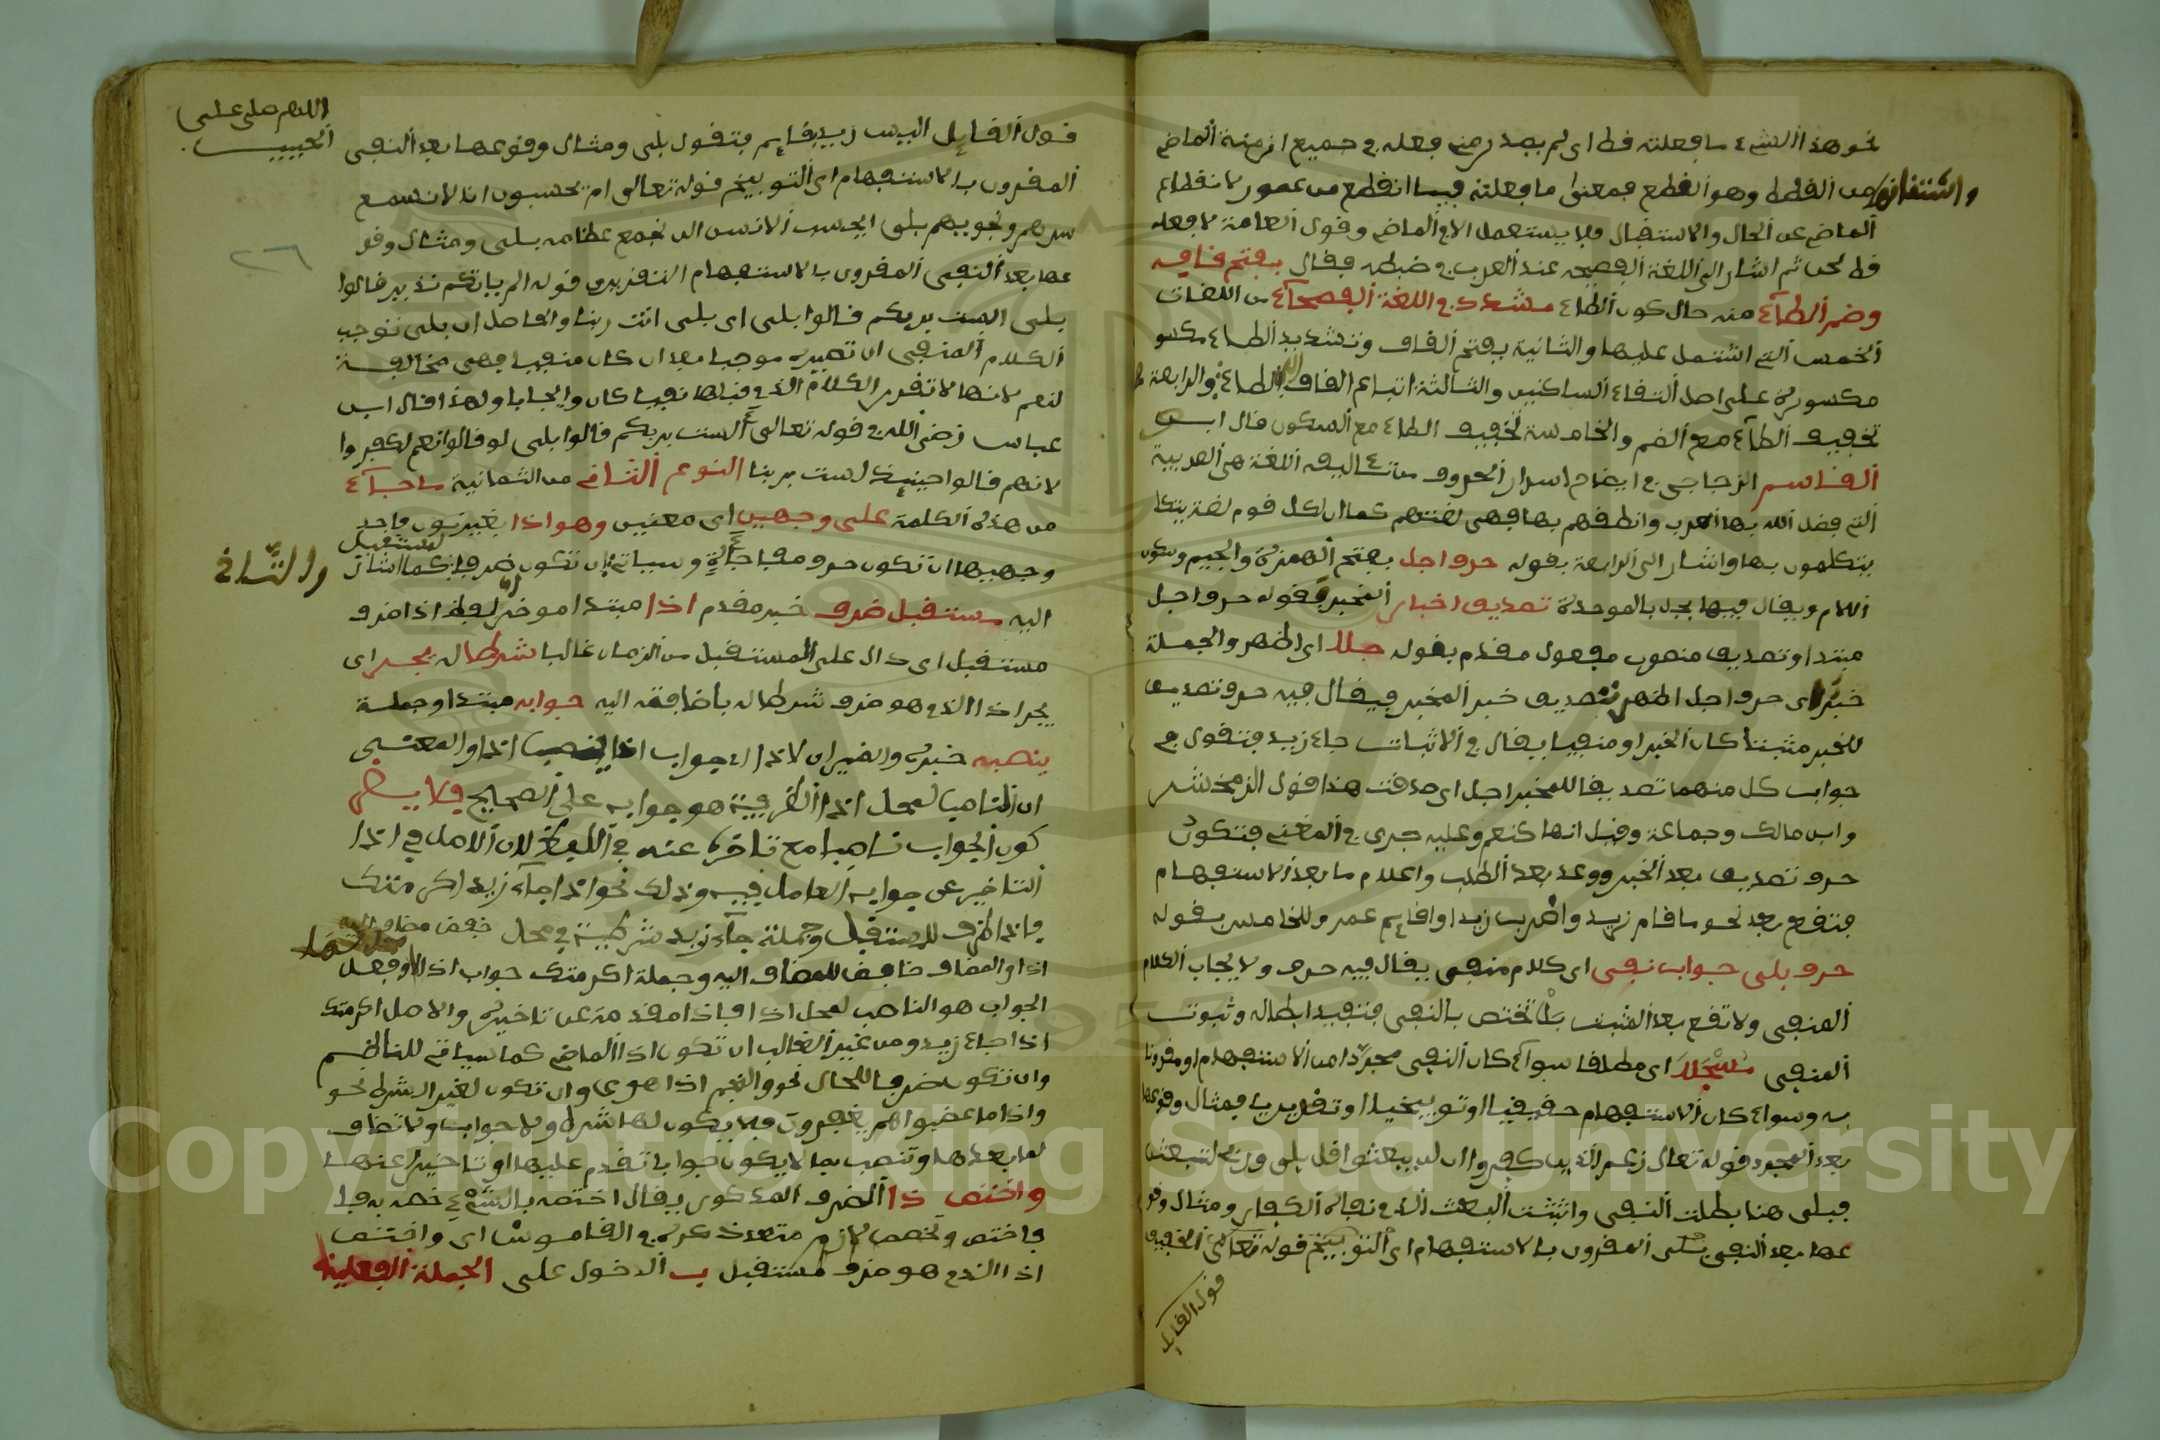 نحو هذا الشيء ما فعلته قط اى لم يصدر منى فعله فى جميع ازمنة الماضى
واشتقاقه من القط وهو القطع فمعنى ما فعلته فيما انقطع من عمرى لانقطاع
الماضى عن الحال والاستقبال فلا يستعمل الا فى الماضى وقول العامة لا افعله
قط لحن ثم اشار الى اللغة الفصيحه عند العرب فى ضبطه فقال بفتح قافه
وضم الطاء منه حال كون الطاء مشدد فى اللغة الفصحاء من اللغات
الخمس التى اشتمل عليها والثانية بفتح القاف وتشديد الطاء مكسو
مكسورة على اصل التقاء الساكنين والثالثة اتباع القاف للطاء والرابعة
تخفيف الطاء مع الضم والخامسة تخفيف الطاء مع السكون قال ابـــــو
القاسم الزجاجى فى ايضاح اسرار الحروف اللغة هى العربية
التى فضل الله بها العرب وانطقهم بها فهى لغتهم كما ان لكل قوم لغة يتكلم
يتكلمون بها واشار الى الرابعة بقوله حرف اجل بفتح الهمزة والجيم وسكون
اللام ويقال فيها بجل بالموحدة تصديق اخبار المخبر فقوله حرف اجل
مبتدا وتصديق منصوب مفعول مقدم بقوله جلا اى اظهر والجملة
خبر اى حرف اجل اظهر تصديق خبر المخبر فيقال فيه حرف تصديق
للخبر مثبتا كان الخبر او منفيا يقال فى الاثبات جاء زيد فتقول فى
جواب كل منهما تصديقا للمخبر اجل اى صدقت هذا قول الزمخشر
وابن مالك وجماعة وقيل انها كنعم وعليه جرى فى المغنى فتكون
حرف تصديق بعد الخبر ووعد بعد الطلب واعلام ما بعد الاستفهام
فتقع بعد نحو ما قام زيد واضرب زيدا واقايم عمر وللخامس بقوله
حرف بلى جواب نفى اى كلام منفى يقال فيه حرف ولايجاب الكلام
المنفى ولا تقع بعد المثبت بل تختص بالنفى فتفيد ابطاله وثبوت
المنفى مسجلا اى مطلقا سواء كان النفى مجردا من الاستفهام او مقرونا
به وسواء كان الاستفهام حقيقيا او توبيخيا او تقريريا فمثال وقوعها
بعد المجرد قوله تعالى زعم الذين كفروا ان لن يبعثوا قل بلى وربى لتبعثن
فبلى هنا بطلت النفى واثبتت البعث الذى نفاه الكفار ومثال وقو
عها بعد النفى بلى المقرون بالاستفهام اى التوبيخى قوله تعالى الحقيقى
قول القايل
اللهم صلى على
الحبيب
٢٦
قول القايل اليس زيد بقايم فتقول بلى ومثال وقوعها بعد النفى
المقرون بالاستفهام اى التوبيخى قوله تعالى ام يحسبون انا لا نسمع
سرهم ونجويهم بلى ايحسب الانسن الن نجمع عظامه بلى ومثال وقو
عها بعد النفى المقرون بالاستفهام التقريرى قوله الم ياتكم نذير قالوا
بلى الست بربكم قالوا بلى اى بلى انت ربنا والحاصل ان بلى توجب
الكلام المنفى اى تصيره موجبا بعد ان كان منفيا فهى مخالفـــة
لنعم لانها لا تقرر الكلام الذى قبلها نفيا كان وايجابا ولهذا قال ابن
عباس رضى الله فى قوله تعالى الست بربكم قالوا بلى لو قالوا نعم لكفروا
لانهم قالوا حينيذ لست بربنا النوع الثانى من الثمانية ما جاء
من هذه الكلمة على وجهين اى معنيين وهو اذا بغير تنوين واحد
وجهيها ان تكون حرف مفاجاة وسياتى ان تكون ظرفا كما اشار
لمستقبل
والثانى
اليه مستقبل ظرف خبر مقدم اذا مبتدا موخر لفظ اذا ظرف
مستقبل اى دال على المستقبل من الزمان غالبا شرطاله يجر اى
يجر اذا الذى هو ظرف شرطاله باضافته اليه جوابه مبتدا وجملة
ينصبه خبره والضميران لاذا اى جواب اذا اذا والمعنى
ان الناصب لمحل اذا الظرفية هو جوابه على الصحيح ولا يضر
كون الجواب ناصبا مع تاخره عنه فى اللفظ لان الاصل فى اذا
التاخير عن جوابه العامل فيه وذلك نحو اذا جاء زيد اكرمتك
فاذا ظرف للمستقبل وجملة جاء زيد شرطية فى محل خفض مضاف اليه
اذا والمضاف خافض للمضاف اليه وجملة اكرمتك جواب اذا وفعل
الجواب هو الناصب لمحل اذا فاذا مقدمة عن تاخير والاصل اكرمتك
اذا جاء زيد ومن غير الغالب ان تكون اذا للماضى كما سياتى للناظم
وان تكون ظرفا للحال نحو والنجم اذا هوى وان تكون لغير الشرط نحو
واذا ما غضبوا هم يغفرون فلا يكون لها شرط ولا جواب ولا تضاف
لما بعدها وتنصب بما لا يكون جوابا تقدم عليها او تاخير عنها
واختص ذا الظرف المذكور يقال اختصه بالشىء خصه به فا
فاختص وتخصص لازم متعد ذكره فى القاموس اى واختص
اذا الذى هو ظرف مستقبل ب الدخول على الجملة الفعلية
Copyright © King Saud University